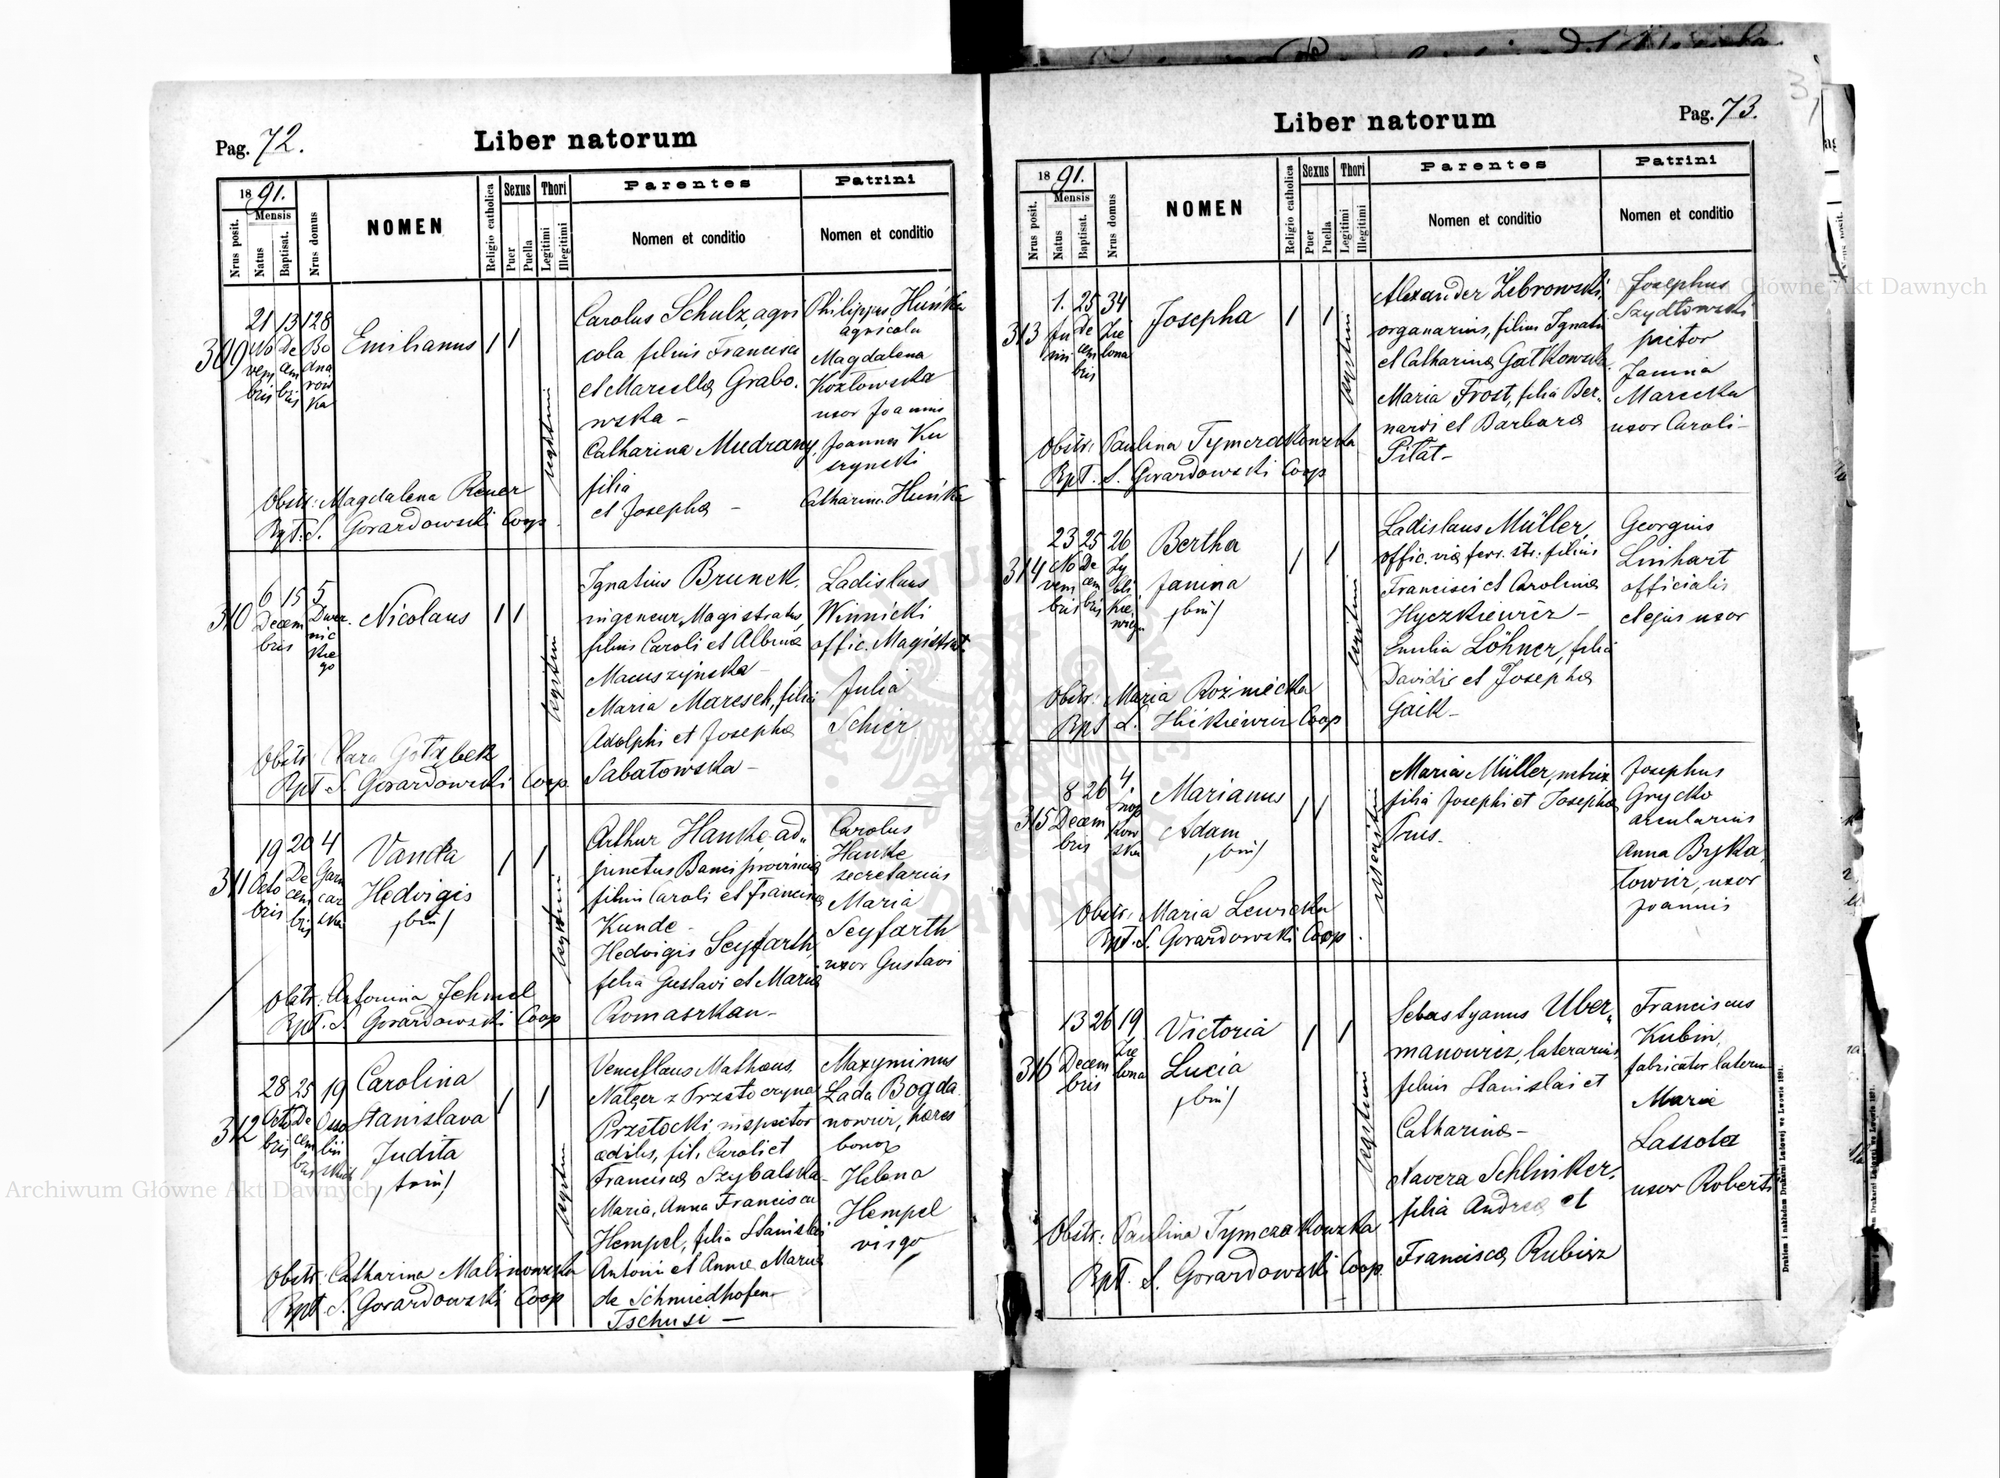 Pag. 72.
Liber natorum
1891.
Mensis
Nrus posit.
Natus
Baptisat.
Nrus domus
NOMEN
Religio catholica
Sexus
Puer
Puella
Thori
Legitimi
Illegitimi
Parentes
Nomen et conditio
Patrini
Nomen et conditio
309
21 No vem bris
13 De cem bris
128 Bo dna row ka
Emilianus
legitimi
Carolus Schulz, agri
cola filius Francisci
et Marcella Grabo-
wska -
Catharina Mudrany,
filia
et Josepha -
Philippus Huńka
agricola
Magdalena
Kozłowska
uxor Joannis
Joannes Ku
szynski
Catharina Huńka
Obstr: Magdalena Rener
Bpt. S. Gorardowski Coop
310
6 Decem bris
15
5 Dwer nic kie go
Nicolaus
legitimi
Ignatius Brunek,
ingeneur Magistratus,
filius Caroli et Albina
Macuszyńska -
Maria Maresch, filia
Adolphi et Josepha
Sabatowska -
Ladislaus
Winnicki
offic. Magistrat.
Julia
Schier
Obstr: Clara
Bpt S. Gorardowski Coop
311
19 Octo bris
20 De cem bris
4 Garn car ska
Vanda
Hedvigis
(bin)
legitimi
Arthur Hanke, ad-
junctus Banci provincia
filius Caroli et Francisca
Kunde -
Hedvigis Seyfarth,
filia Gustavi et Maria
Romaszkan -
Carolus
Hanke
secretarius
Maria
Seyfarth
uxor Gustavi
Obstr: Antonina Jehmel
Bpt. S. Gorardowski Coop
312
28 Octo bris
25 De cem bris
19 Osso liń skich
Carolina
Stanislava
Judita
(trin)
legitimi
Venceslaus Mathaus
Nałęcz z Przetoczyna
Przetocki, inspector
aedilis, fil. Caroli et
Francisca Szybalska
Maria, Anna Francisca
Hempel, filia Stanislai
Antoni et Anna Maria
de Schmiedhofen-
Tschusi -
Maxyminus
Lada Bogda
nowicz, haeres
bonor
Helena
Hempel
virgo
Obstr: Catharina Malinowska
Bpt S. Gorardowski Coop
Pag. 73.
Liber natorum
1891.
Mensis
Nrus posit.
Natus
Baptisat.
Nrus domus
NOMEN
Religio catholica
Sexus
Puer
Puella
Thori
Legitimi
Illegitimi
Parentes
Nomen et conditio
Patrini
Nomen et conditio
313
1. Ju nii
25 De cem bris
34 Zie lona
Josepha
legitimi
Alexander Żebrowski,
organarius, filius Ignatii
et Catharina Gatkowska
Maria Frost, filia Ber-
nardi et Barbara
Pilat -
Josephus
Szydłowski
pictor
Janina
Marecka
uxor Caroli -
Obstr: Paulina Tymczakowska
Bpt. S. Gorardowski Coop
314
23 No vem bris
25 De cem bris
26
Bertha
Janina
(bin)
legitimi
Ladislaus Müller,
offic. via ferr. str: filius
Francisci et Carolina
Hyczkiewicz -
Emilia Löhner, filia
Davidis et Josepha
Gaik -
Georgius
Linhart
officialis
et ejus uxor
Obstr: Maria Rozmiecka
Bpt L. Coop
315
8 Decem bris
26
4. Snop kow ska
Marianus
Adam
(bin)
illegitimi
Maria Müller,
filia Josephi et Josepha
Trus -
Josephus
Grycko
arcularius
Anna Byka
łowicz, uxor
Joannis
Obstr: Maria Lewicka
Bpt. S. Gorardowski Coop
316
13 Decem bris
26
19 Zie lona
Victoria
Lucia
(bin)
legitimi
Sebastyanus Uber-
manowicz, laterarius
filius Stanislai et
Catharina -
Xavera Schlinker,
filia Andrea et
Francisca Rubisz
Franciscus
Kubin,
fabricator laterum
Maria
Lassota
uxor Roberti
Obstr: Paulina Tymczakowska
Bpt. S. Gorardowski Coop
Drukiem i nakładem Drukarni Ludowej we Lwowie 1891.
Archiwum Główne Akt Dawnych
Archiwum Główne Akt Dawnych